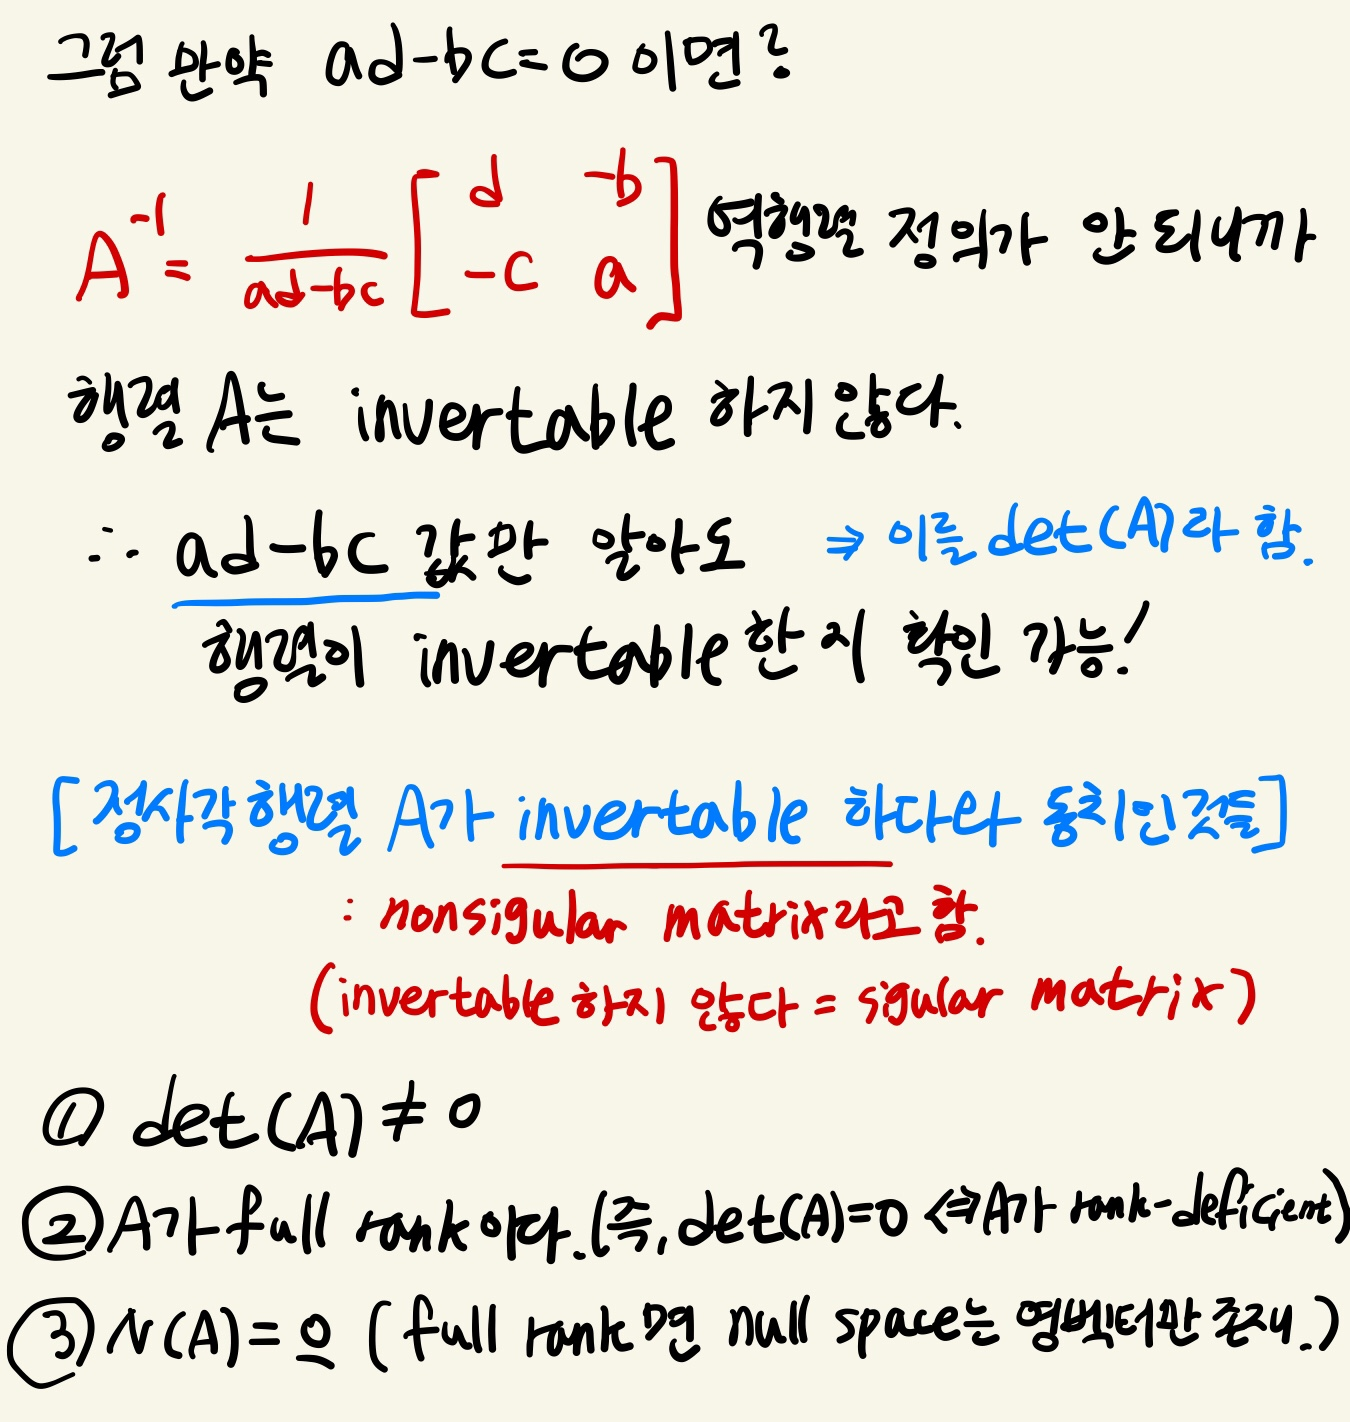 그럼 만약 ad-bc=0 이면?
A⁻¹ = 1/(ad-bc) [d -b; -c a] 역행렬 정의가 안 되니까
행렬 A는 invertable 하지 않다.
∴ ad-bc 값만 알아도 ⇒ 이를 det(A)라 함.
행렬이 invertable 한 지 확인 가능!
[정사각행렬 A가 invertable 하다와 동치인것들]
: nonsigular matrix라고 함.
(invertable 하지 않다 = sigular matrix)
① det(A) ≠ 0
② A가 full rank이다. (즉, det(A)=0 ⇔ A가 rank-deficient)
③ N(A) = 0 (full rank면 null space는 영벡터만 존재.)